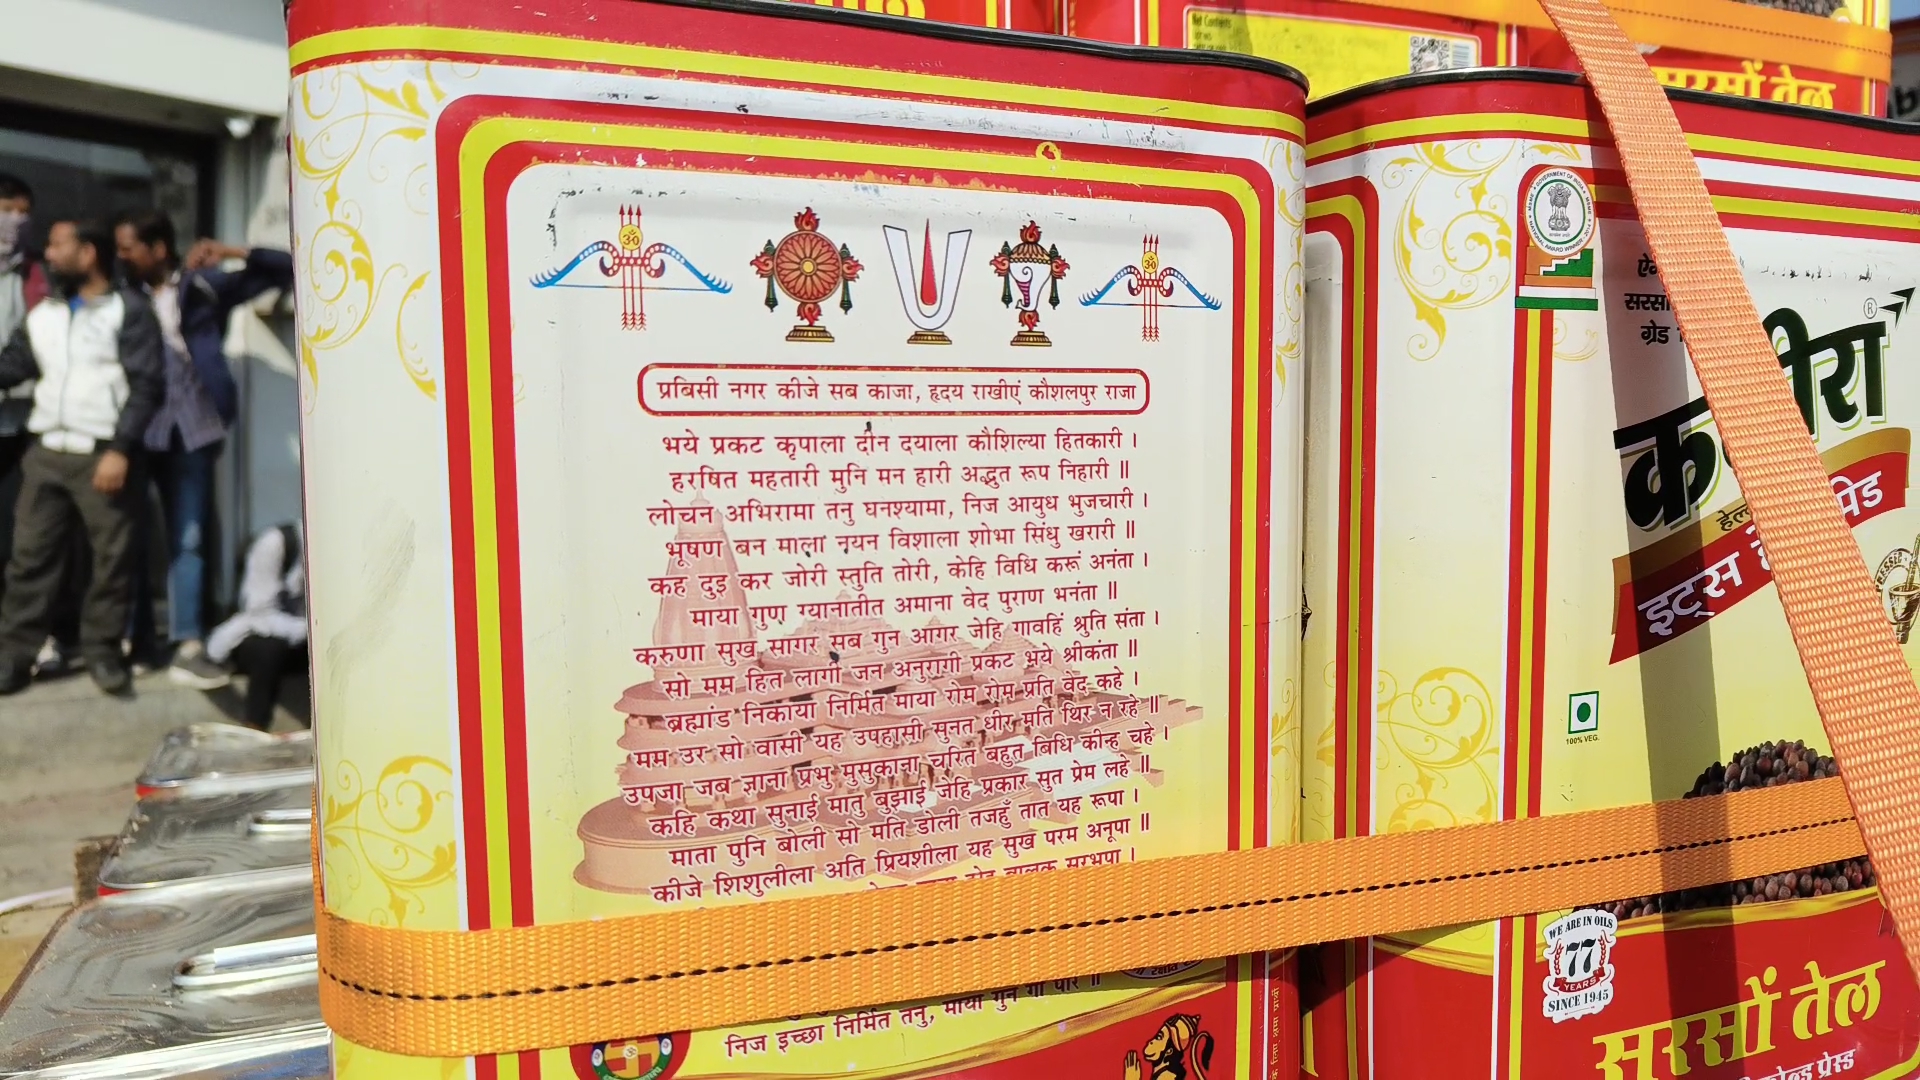 Net Contents
सरसों तेल
प्रबिसी नगर कीजे सब काजा, हृदय राखीएं कौशलपुर राजा
भये प्रकट कृपाला दीन दयाला कौशिल्या हितकारी ।
हरषित महतारी मुनि मन हारी अद्भुत रूप निहारी ॥
लोचन अभिरामा तनु घनश्यामा, निज आयुध भुजचारी ।
भूषण बन माला नयन विशाला शोभा सिंधु खरारी ॥
कह दुइ कर जोरी स्तुति तोरी, केहि विधि करूं अनंता ।
माया गुण ग्यानातीत अमाना वेद पुराण भनंता ॥
करुणा सुख सागर सब गुन आगर जेहि गावहिं श्रुति संता ।
सो मम हित लागी जन अनुरागी प्रकट भये श्रीकंता ॥
ब्रह्मांड निकाया निर्मित माया रोम रोम प्रति वेद कहे ।
मम उर सो वासी यह उपहासी सुनत धीर मति थिर न रहे ॥
उपजा जब ज्ञाना प्रभु मुसुकाना चरित बहुत बिधि कीन्ह चहे ।
कहि कथा सुनाई मातु बुझाई जेहि प्रकार सुत प्रेम लहे ॥
माता पुनि बोली सो मति डोली तजहुँ तात यह रूपा ।
कीजे शिशुलीला अति प्रियशीला यह सुख परम अनूपा ॥
बालक सुरभूपा ।
माया गुन गो पार ॥
निज इच्छा निर्मित तनु,
GOVERNMENT OF INDIA
NATIONAL AWARD WINNER
ग्रेड
®
इट्स
100% VEG.
WE ARE IN OILS
77
YEARS
SINCE 1945
सरसों तेल
कोल्ड प्रेस्ड